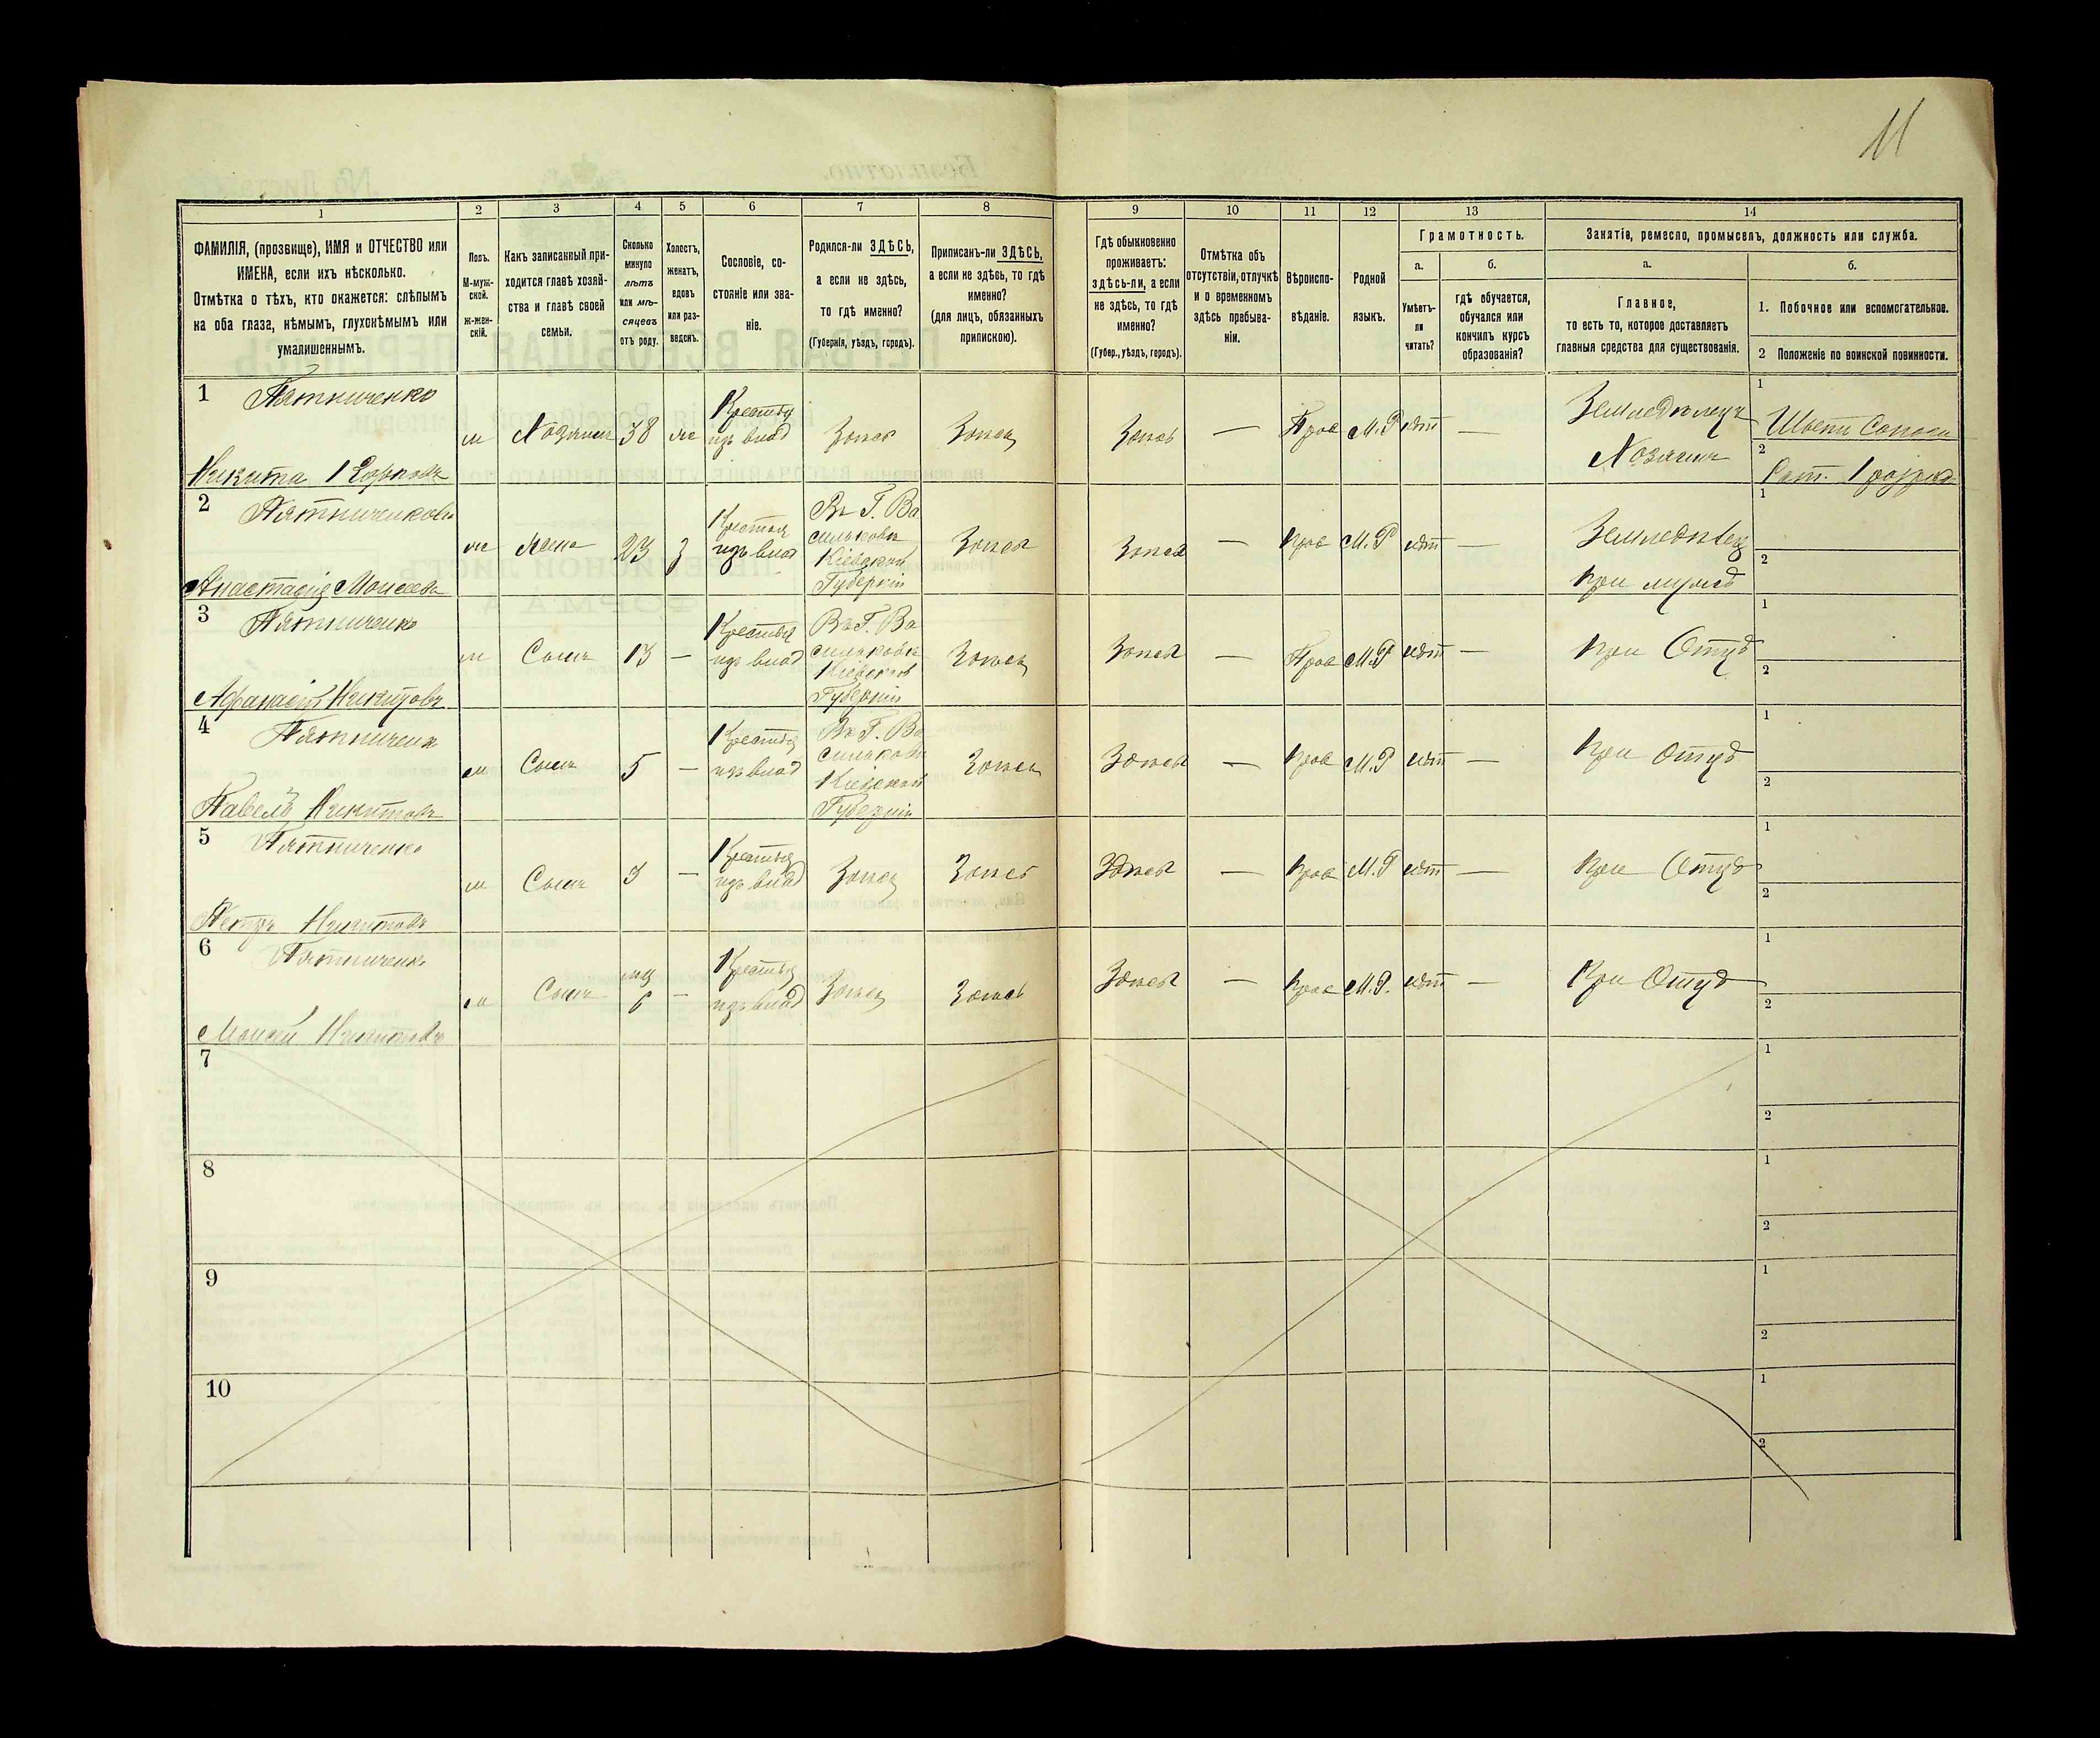 11
1
2
3
4
5
6
7
8
9
10
11
12
13
14
ФАМИЛІЯ, (прозвище), ИМЯ и ОТЧЕСТВО или
ИМЕНА, если ихъ нѣсколько.
Отмѣтка о тѣхъ, кто окажется: слѣпымъ
на оба глаза, нѣмымъ, глухонѣмымъ или
умалишеннымъ.
Полъ.
М-муж-
ской.
ж-жен-
скій.
Какъ записанный при-
ходится главѣ хозяй-
ства и главѣ своей
семьи.
Сколько
минуло
лѣтъ
или мѣ-
сяцевъ
отъ роду.
Холостъ,
женатъ,
вдовъ
или раз-
веденъ.
Сословіе, со-
стояніе или зва-
ніе.
Родился-ли ЗДѢСЬ,
а если не здѣсь,
то гдѣ именно?
(Губернія, уѣздъ, городъ).
Приписанъ-ли ЗДѢСЬ,
а если не здѣсь, то гдѣ
именно?
(для лицъ, обязанныхъ
припискою).
Гдѣ обыкновенно
проживаетъ:
здѣсь-ли, а если
не здѣсь, то гдѣ
именно?
(Губер., уѣздъ, городъ).
Отмѣтка объ
отсутствіи, отлучкѣ
и о временномъ
здѣсь пребыва-
ніи.
Вѣроиспо-
вѣданіе.
Родной
языкъ.
Грамотность.
а.
Умѣетъ-
ли
читать?
б.
гдѣ обучается,
обучался или
кончилъ курсъ
образованія?
Занятіе, ремесло, промыселъ, должность или служба.
а.
Главное,
то есть то, которое доставляетъ
главныя средства для существованія.
б.
1. Побочное или вспомогательное.
2 Положеніе по воинской повинности.
1 Пятниченко
Никита
м Хозяинъ 38 ж
Крестья
изъ влад
Здѣсь Здѣсь Здѣсь — Прав М.Р нѣт —
Земледѣлецъ
Хозяинъ
1
Шьетъ Сапоги
2
Рат. 1 разряд
2 Пятниченкова
Анастасія Моисеев
ж Жена 23 з
Крестья
изъ влад
Въ Г. Ва
сильковъ
Кіевской
Губерніи
Здѣсь Здѣсь — Прав М.Р нѣт —
Земледѣлец
При мужѣ
1
2
3 Пятниченко
Афанасій Никитовъ
м Сынъ 13 —
Крестья
изъ влад
Въ Г. Ва
сильковъ
Кіевской
Губерніи
Здѣсь Здѣсь — Прав М.Р нѣт —
При Отцѣ
1
2
4 Пятниченк
Павелъ Никитовъ
м Сынъ 5 —
Крестья
изъ влад
Въ Г. Ва
сильковъ
Кіевской
Губерніи
Здѣсь Здѣсь — Прав М.Р нѣт —
При Отцѣ
1
2
5 Пятниченко
Петръ Никитовъ
м Сынъ 3 —
Крестья
изъ влад
Здѣсь Здѣсь Здѣсь — Прав М.Р нѣт —
При Отцѣ
1
2
6 Пятниченк
Моисей Никитовъ
м Сынъ
мц
6 —
Крестья
изъ влад
Здѣсь Здѣсь Здѣсь — Прав М.Р. нѣт —
При Отцѣ
1
2
7
1
2
8
1
2
9
1
2
10
1
2